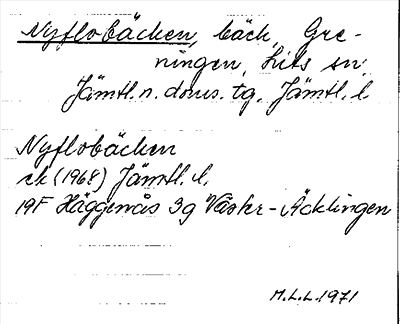 Nyflobäcken, bäck, Gre-
ningen, Lits sn,
Jämtl. n. doms. tg, Jämtl. l.
Nyflobäcken
ek (1968) Jämtl. l.
19F Häggenås 3g Väster-Äcklingen
M.L.L. 1971